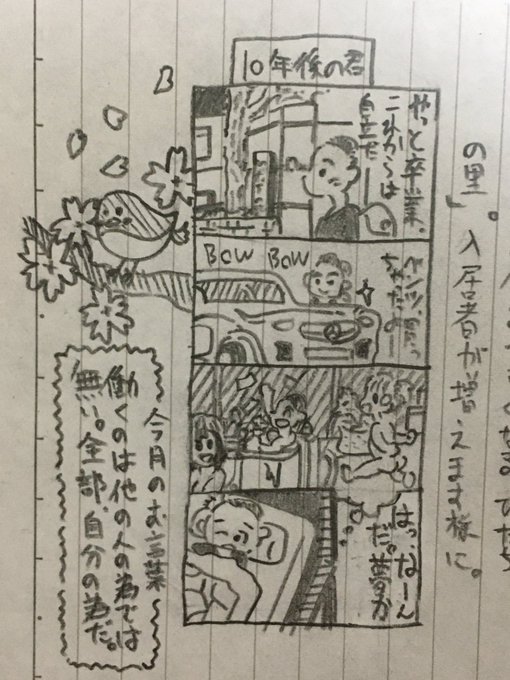 の里」。入居者が増えます様に。
10年後の君
やっと卒業、
これからは
自立だ
ベンツ、買っ
ちゃったよー
BOW BOW
はっ なーん
だ。夢か
今月のお言葉
働くのは他の人の為では
無い。全部、自分の為だ。